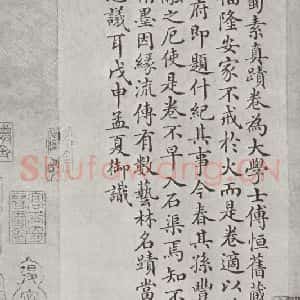 勣素真蹟卷為大學士傅恒舊藏
福隆安家不戒於火而是卷適以
府即題什紀其事今春其孫豐
融之厄使是卷不早入石渠焉知不
翰墨因緣流傳有數藝林名蹟當
思議耳戊申孟夏御識
Shufawang.CN